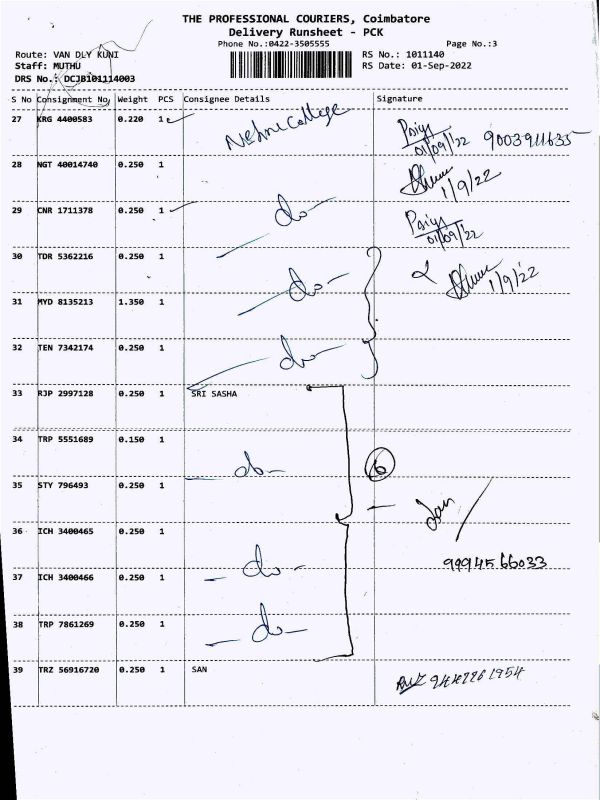 THE PROFESSIONAL COURIERS, Coimbatore
Delivery Runsheet - PCK
Phone No.:0422-3505555 Page No.:3
Route: VAN DLY KUNI RS No.: 1011140
Staff: MUTHU RS Date: 01-Sep-2022
DRS No.: DCJB101114003
S No Consignment No. Weight PCS Consignee Details Signature
27 KRG 4400583 0.220 1 Nehru College Priya 01/09/22 9003911635
28 NGT 40014740 0.250 1 1/9/22
29 CNR 1711378 0.250 1 do Priya 01/09/22
30 TDR 5362216 0.250 1
31 MYD 8135213 1.350 1 do 1/9/22
32 TEN 7342174 0.250 1 do
33 RJP 2997128 0.250 1 SRI SASHA
34 TRP 5551689 0.150 1 do 6
35 STY 796493 0.250 1
36 ICH 3400465 0.250 1 do 9994566033
37 ICH 3400466 0.250 1
38 TRP 7861269 0.250 1 do
39 TRZ 56916720 0.250 1 SAN